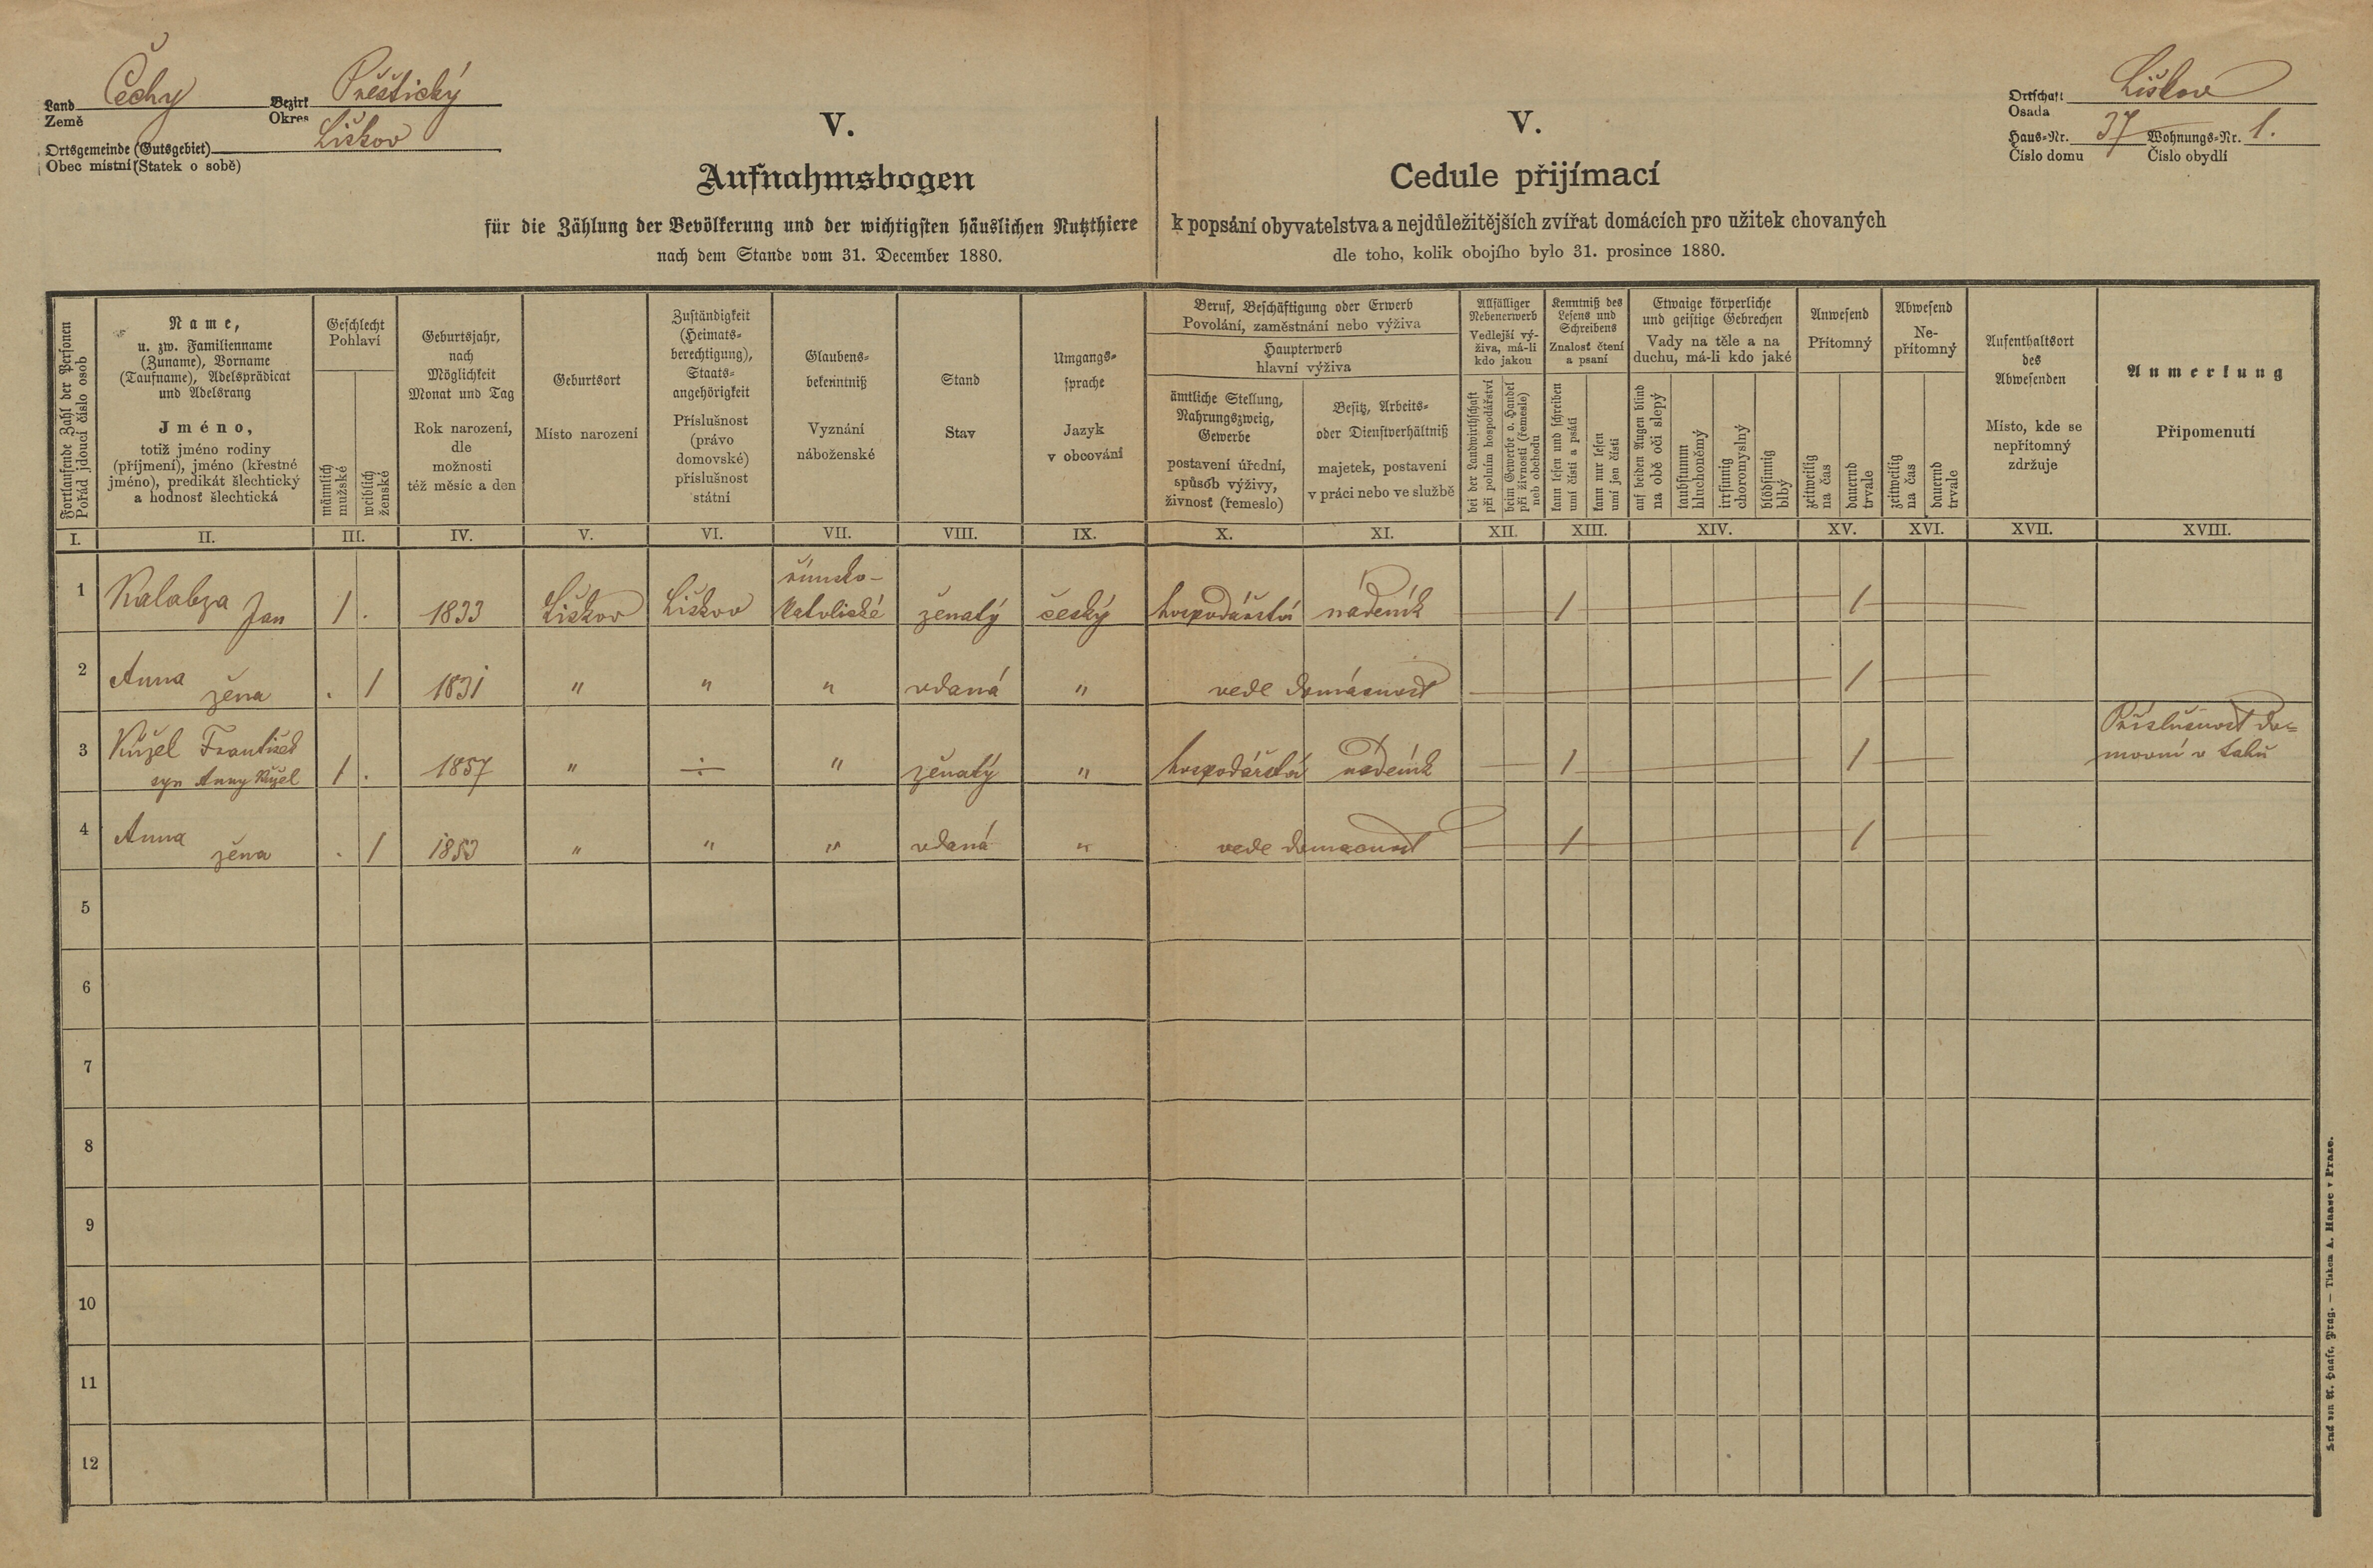 Land Čechy Bezirk Přeštický
Země Okres
Ortsgemeinde (Gutsgebiet) Liškov
Obec místní (Statek o sobě)
V.
Aufnahmsbogen
für die Zählung der Bevölkerung und der wichtigsten häuslichen Nutzthiere
nach dem Stande vom 31. December 1880.
V.
Cedule přijímací
k popsání obyvatelstva a nejdůležitějších zvířat domácích pro užitek chovaných
dle toho, kolik obojího bylo 31. prosince 1880.
Ortschaft Liškov
Osada
Haus-Nr. 37 Wohnungs-Nr. 1.
Číslo domu Číslo obydlí
Fortlaufende Zahl der Personen
Pořád jdoucí číslo osob
Name,
u. zw. Familienname
(Zuname), Vorname
(Taufname), Adelsprädicat
und Adelsrang
Jméno,
totiž jméno rodiny
(příjmení), jméno (křestné
jméno), predikát šlechtický
a hodnosť šlechtická
Geschlecht
Pohlaví
männlich
mužské
weiblich
ženské
Geburtsjahr,
nach
Möglichkeit
Monat und Tag
Rok narození,
dle
možnosti
též měsíc a den
Geburtsort
Místo narození
Zuständigkeit
(Heimats-
berechtigung),
Staats-
angehörigkeit
Příslušnost
(právo
domovské)
příslušnost
státní
Glaubens-
bekenntniß
Vyznání
náboženské
Stand
Stav
Umgangs-
sprache
Jazyk
v obcování
Beruf, Beschäftigung oder Erwerb
Povolání, zaměstnání nebo výživa
Haupterwerb
hlavní výživa
ämtliche Stellung,
Nahrungszweig,
Gewerbe
postavení úřední,
spůsób výživy,
živnosť (řemeslo)
Besitz, Arbeits-
oder Dienstverhältniß
majetek, postavení
v práci nebo ve službě
Allfälliger
Nebenerwerb
Vedlejší vý-
živa, má-li
kdo jakou
bei der Landwirthschaft
při polním hospodářství
beim Gewerbe o. Handel
při živnosti (řemesle)
neb obchodu
Kenntniß des
Lesens und
Schreibens
Znalosť čtení
a psaní
kann lesen und schreiben
umí čísti a psáti
kann nur lesen
umí jen čísti
Etwaige körperliche
und geistige Gebrechen
Vady na těle a na
duchu, má-li kdo jaké
auf beiden Augen blind
na obě oči slepý
taubstumm
hluchoněmý
irrsinnig
choromyslný
blödsinnig
blbý
Anwesend
Přítomný
zeitweilig
na čas
dauernd
trvale
Abwesend
Ne-
přítomný
zeitweilig
na čas
dauernd
trvale
Aufenthaltsort
des
Abwesenden
Místo, kde se
nepřítomný
zdržuje
Anmerkung
Připomenutí
I. II. III. IV. V. VI. VII. VIII. IX. X. XI. XII. XIII. XIV. XV. XVI. XVII. XVIII.
1 Kalabza Jan 1 . 1833 Liškov Liškov římsko-
katolické ženatý český hospodářství nádeník 1 1
2 Anna žena . 1 1831 " " " vdaná " vede domácnost 1
3 Kužel František
syn Anny Kužel 1 . 1857 " ÷ " ženatý " hospodářství nádeník 1 1 Příslušnost do-
movní v
4 Anna žena . 1 1853 " " " vdaná " vede domácnost 1 1
5
6
7
8
9
10
11
12
Druck von A. Haase, Prag. — Tiskem A. Haase v Praze.